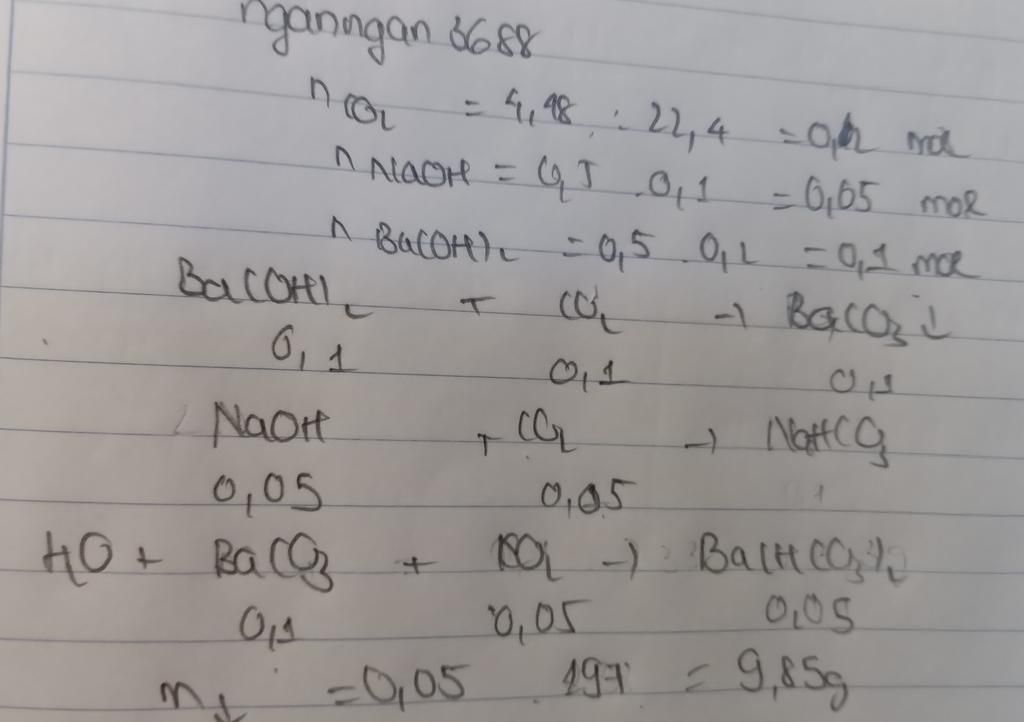 nganngan 3688
nCO2 = 4,48 : 22,4 = 0,2 mol
nNaOH = 0,5 . 0,1 = 0,05 mol
nBa(OH)2 = 0,5 . 0,2 = 0,1 mol
Ba(OH)2 + CO2 → BaCO3↓
0,1 0,1 0,1
NaOH + CO2 → NaHCO3
0,05 0,05
H2O + BaCO3 + CO2 → Ba(HCO3)2
0,1 0,05 0,05
m↓ = 0,05 . 197 = 9,85g